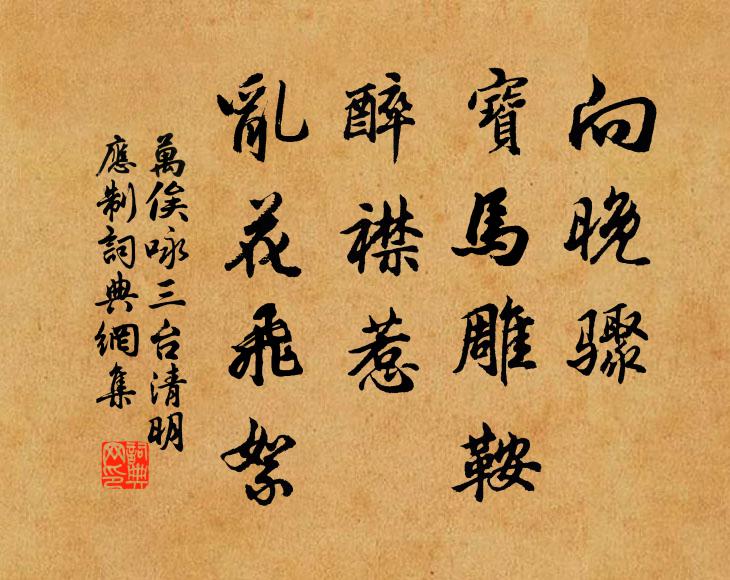 向晚骤
寶馬雕鞍
醉襟惹
亂花飛絮
萬俟咏三台清明
應制詞典網集
詞典
网印